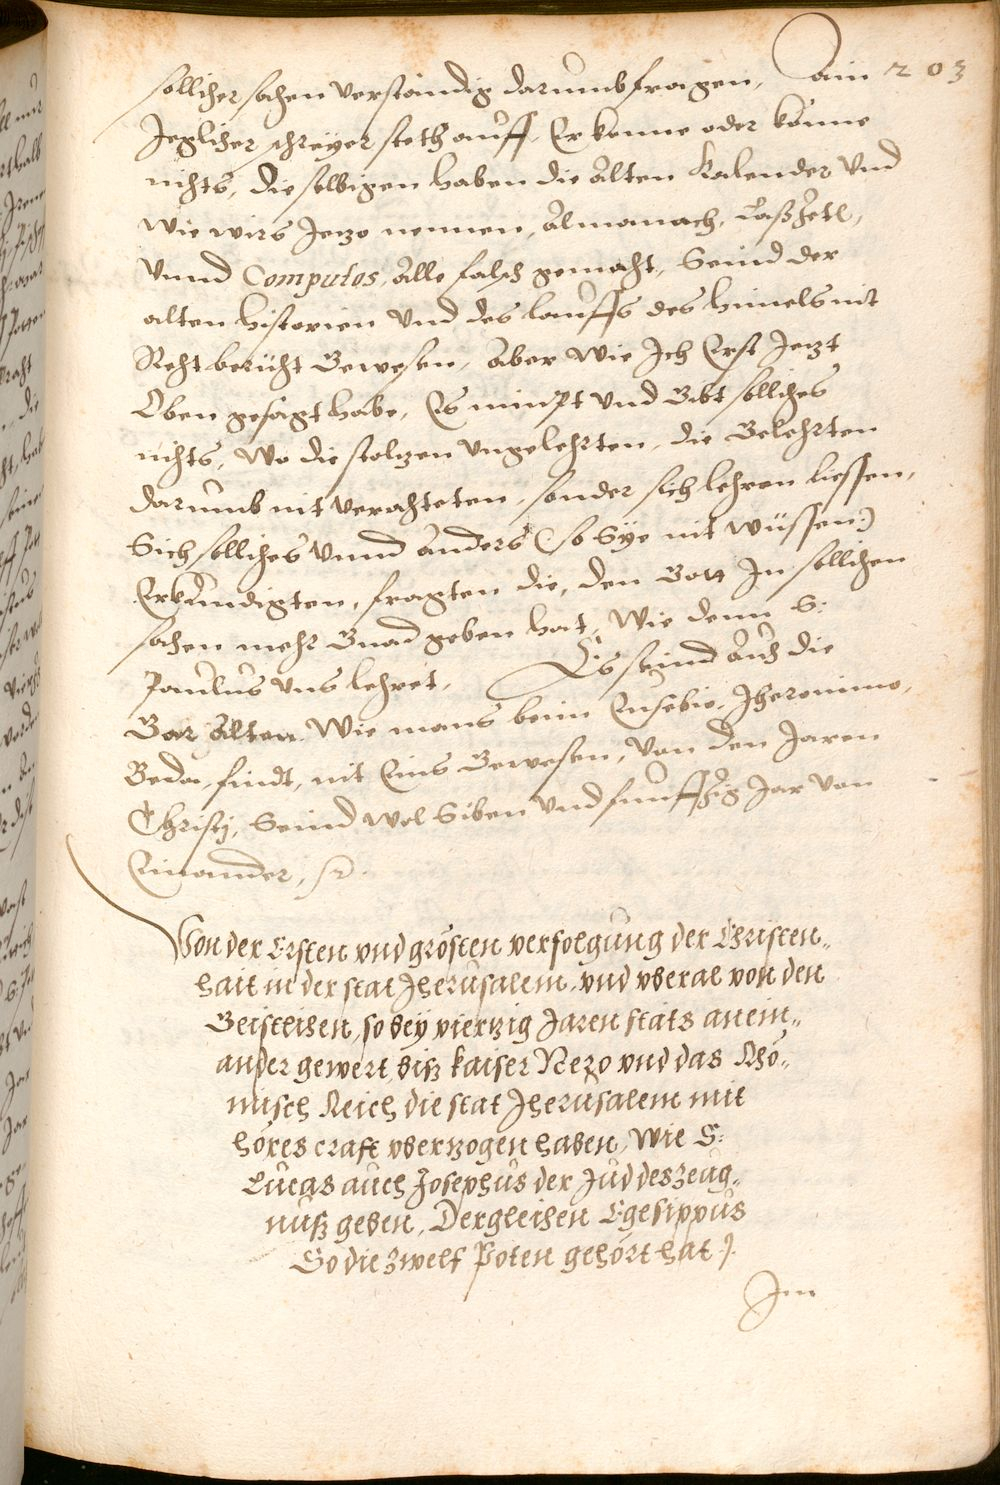 203
sollicher sachen verständig darumb fragen, Ain
Jeglicher schreyer steth auff, Er konne oder könne
nichts, die selbigen haben die Alten Kalender und
wie wirs Jezo nennen, Almanach, Laßzetl,
Unnd Computos, Alle falsch gemacht, Seind der
alten historien Und des lauffs des himels nit
Recht bericht Gewesen, Aber wie Ich Erst Jezt
Oben gesagt habe, Es nimpt und Gibt solliches
nichts, Wo die stolzen Ungelehrten, die Gelehrten
darumb nit verachteten, sonder sich lehren liessen,
Sich solliches Unnd Anders (so Sye nit wüssen)
Erkundigten, fragten die, den Gott In sollichen
sachen mehr Gnad geben hat, Wie denn S:
Paulus Uns lehret, Es seind Auch die
Gar Alten Wie mans beim Eusebio, Jheronimo,
Beda, findt, nit Eins Gewesen, Von den Jaren
Christj, Seind wol Siben Und funffzig Jar Von
Einander, etc.
Von der Ersten vnd grösten verfolgung der Christen,,
hait in der stat Jherusalem, vnd vberal von den
Geistlichen, so bey viertzig Jaren stäts an ein,,
ander gewert, biß kaiser Nero vnd das Rhö,,
misch Reich die stat Jherusalem mit
höres craft vbertzogen haben, Wie S:
Lucas auch Josephus der Jud des Zeug,,
nuß geben, Dergleichen Egesippus
So die zwelf Poten gehört hat ).
Im